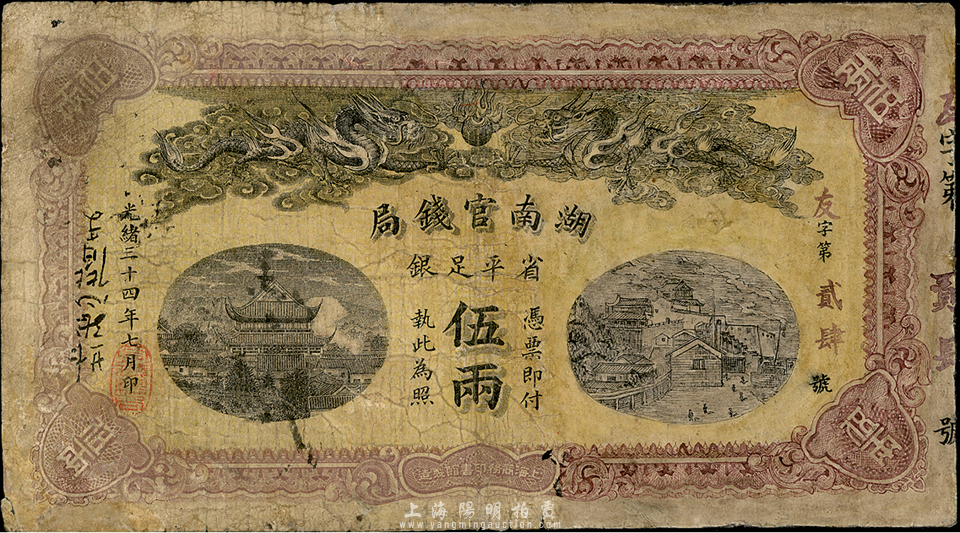 湖南官錢局
省平足銀
憑票即付
伍兩
執此為照
友字第貳肆號
光緒三十四年七月印
伍兩
伍兩
伍兩
伍兩
上海商務印書館製造
字第
號
上海陽明拍賣
www.yangmingauction.com